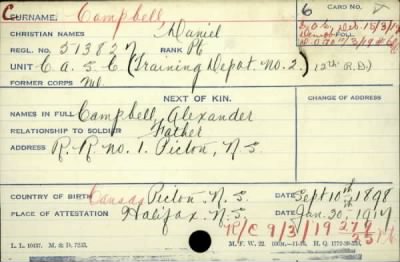 C SURNAME: Campbell, 6 CARD NO.
CHRISTIAN NAMES Daniel
REGL. NO. 513827 RANK Pte
UNIT C.A.S.C. (Training Depot No. 2.) (12th R.D.)
FORMER CORPS Nil.
NEXT OF KIN. CHANGE OF ADDRESS
NAMES IN FULL Campbell, Alexander
RELATIONSHIP TO SOLDIER Father
ADDRESS R.R. No. 1. Pictou, N.S.
COUNTRY OF BIRTH Canada Pictou. N.S. DATE Sept 10th 1898
PLACE OF ATTESTATION Halifax. N.S. DATE Jan. 30, 1917
R/C 9/3/19 279
L. L. 10437. M. & D. 7253. M. F. W. 22.